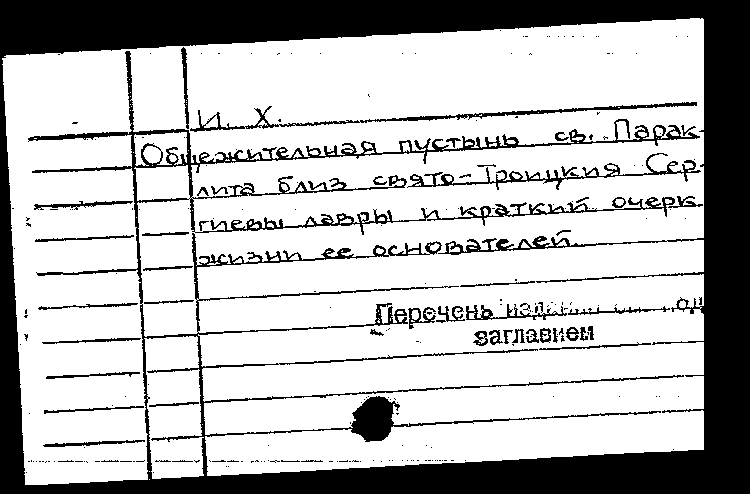 И. Х.
Общежительная пустынь св. Парак-
лита близ свято-Троицкия Сер-
гиевы лавры и краткий очерк
жизни ее основателей.
Перечень
заглавием